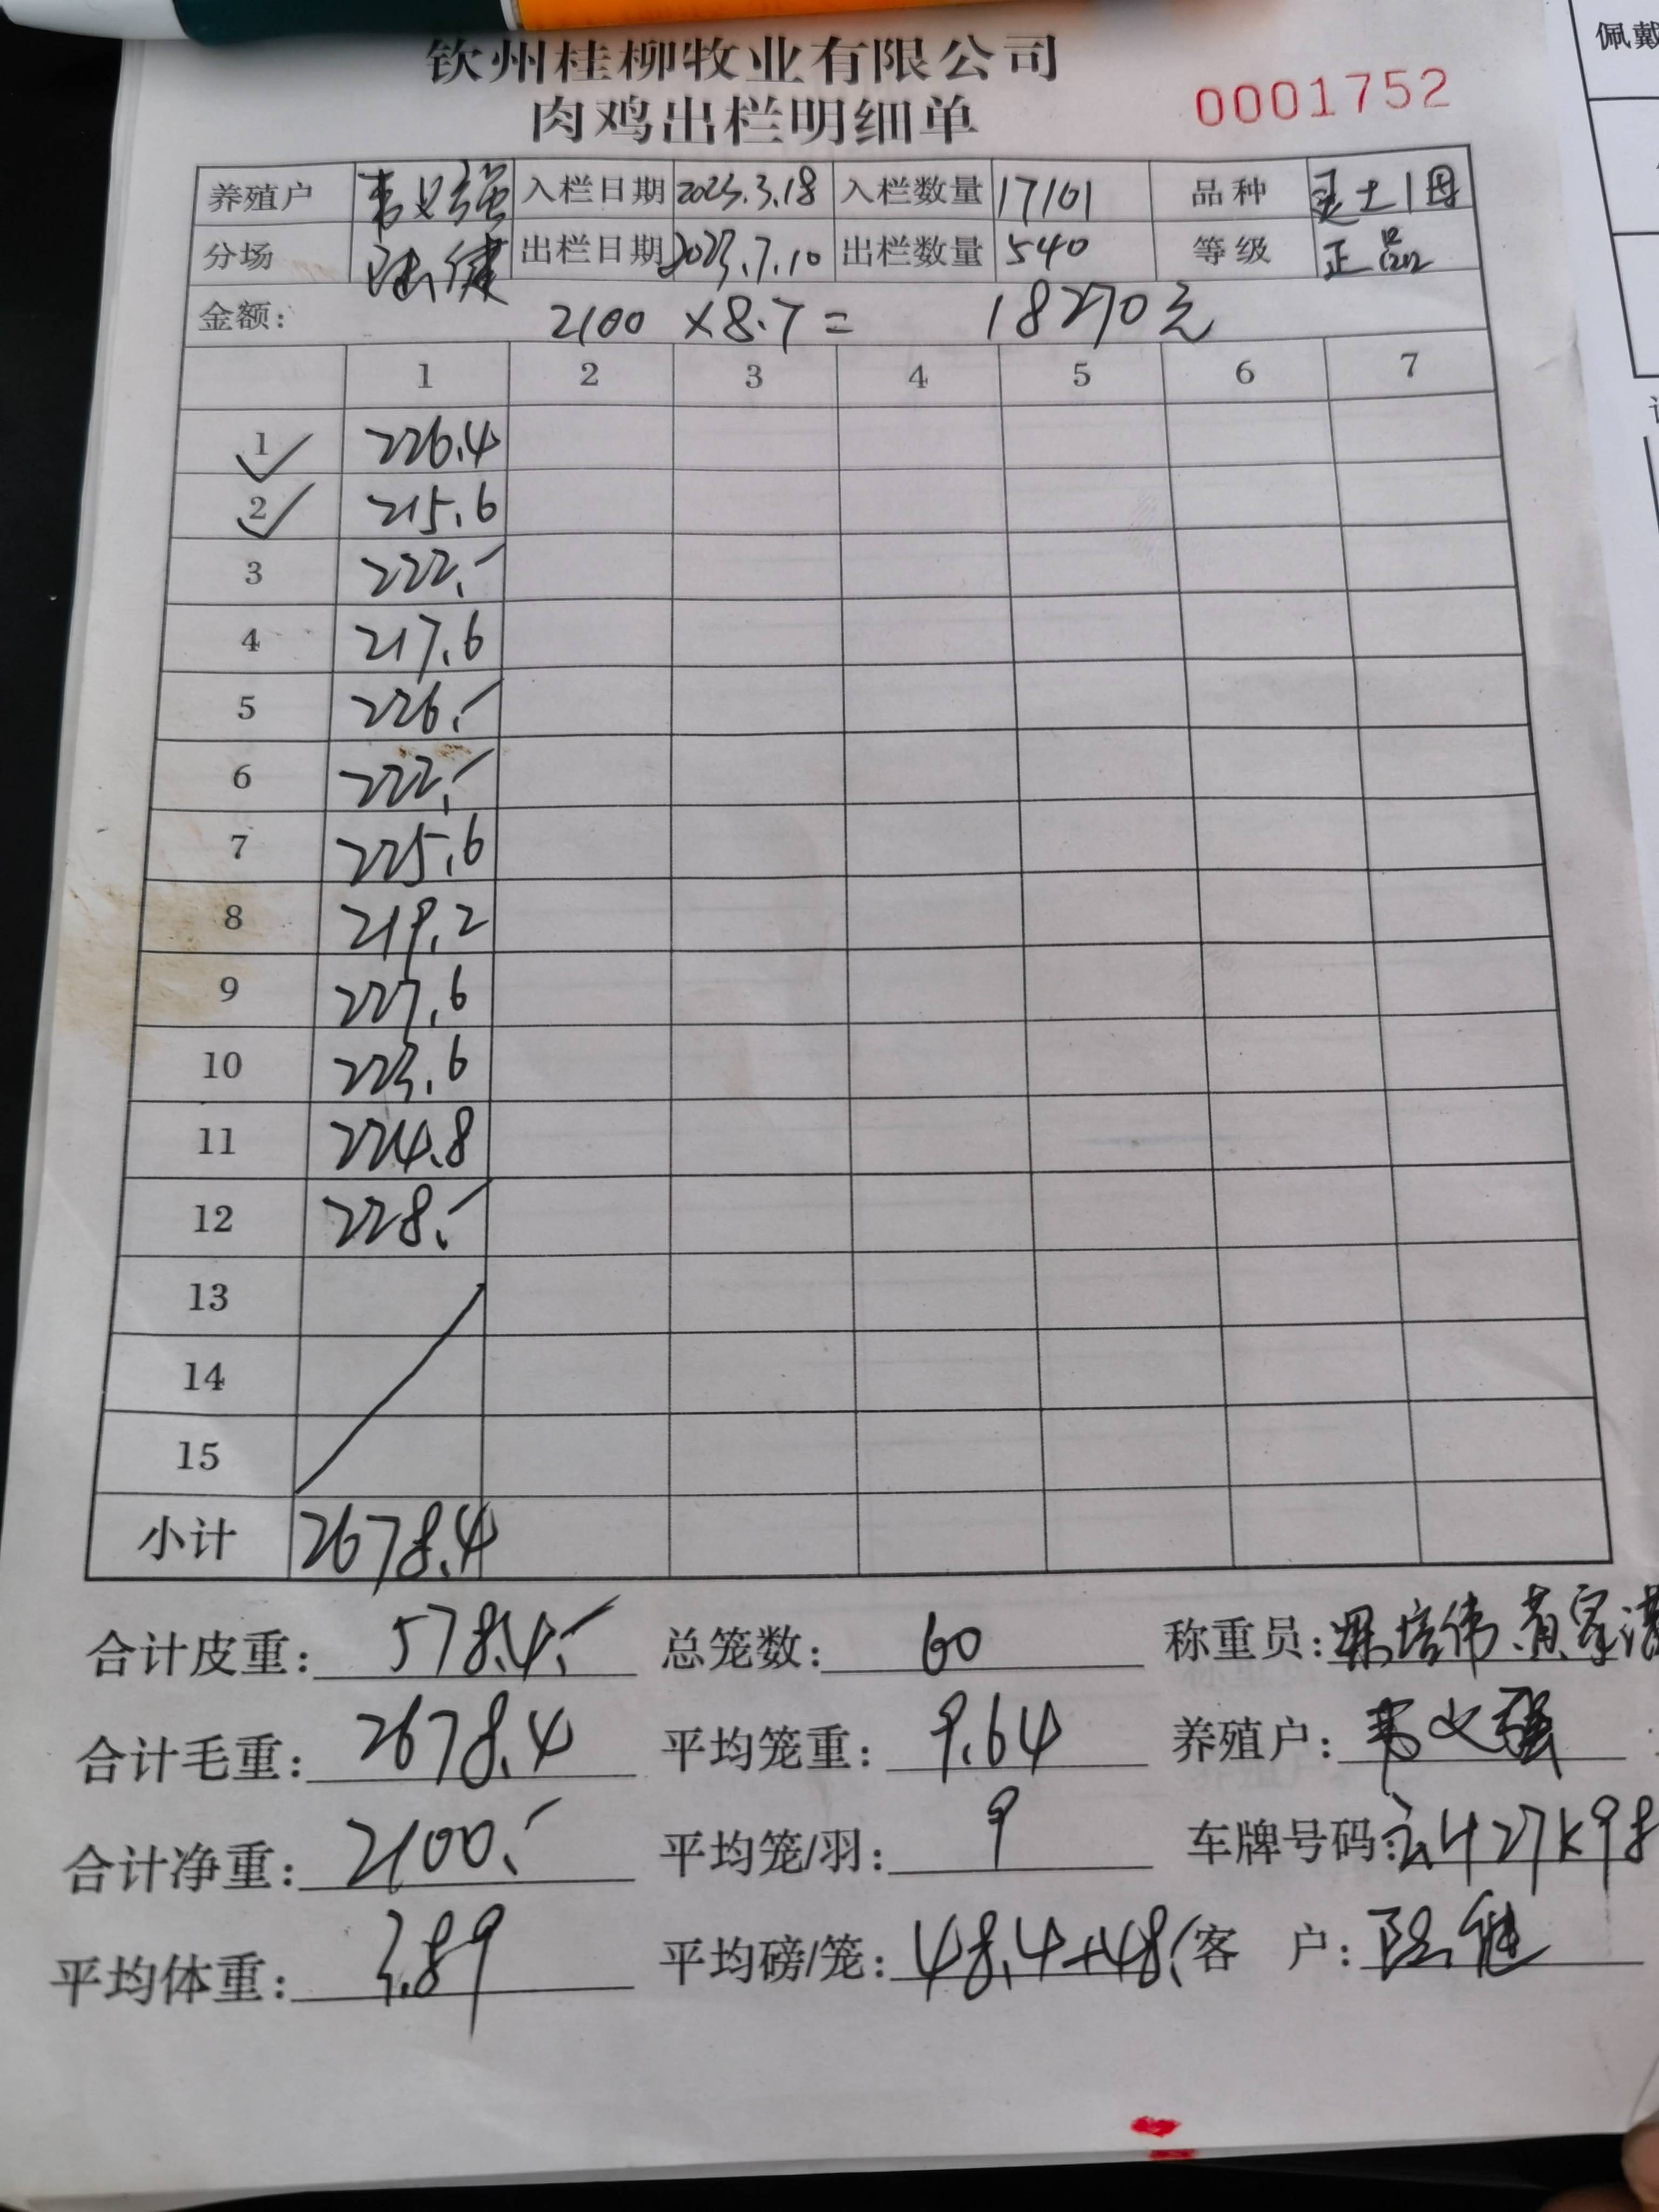 钦州桂柳牧业有限公司
肉鸡出栏明细单
0001752
佩戴
养殖户 韦义强 入栏日期 2023.3.18 入栏数量 17101 品种 灵土1母
分场 出栏日期 2023.7.10 出栏数量 540 等级 正品
金额: 2100 ×8.7 = 18270元
1 2 3 4 5 6 7
1 226.4
2 215.6
3 222.-
4 217.6
5 226.-
6 222.-
7 225.6
8 219.2
9 227.6
10 223.6
11 224.8
12 228.-
13
14
15
小计 2678.4
合计皮重: 578.4.- 总笼数: 60 称重员: 梁培伟 黄家
合计毛重: 2678.4 平均笼重: 9.64 养殖户: 韦义强
合计净重: 2100.- 平均笼/羽: 9 车牌号码:
平均体重: 3.89 平均磅/笼: 48.4+48. 客 户: